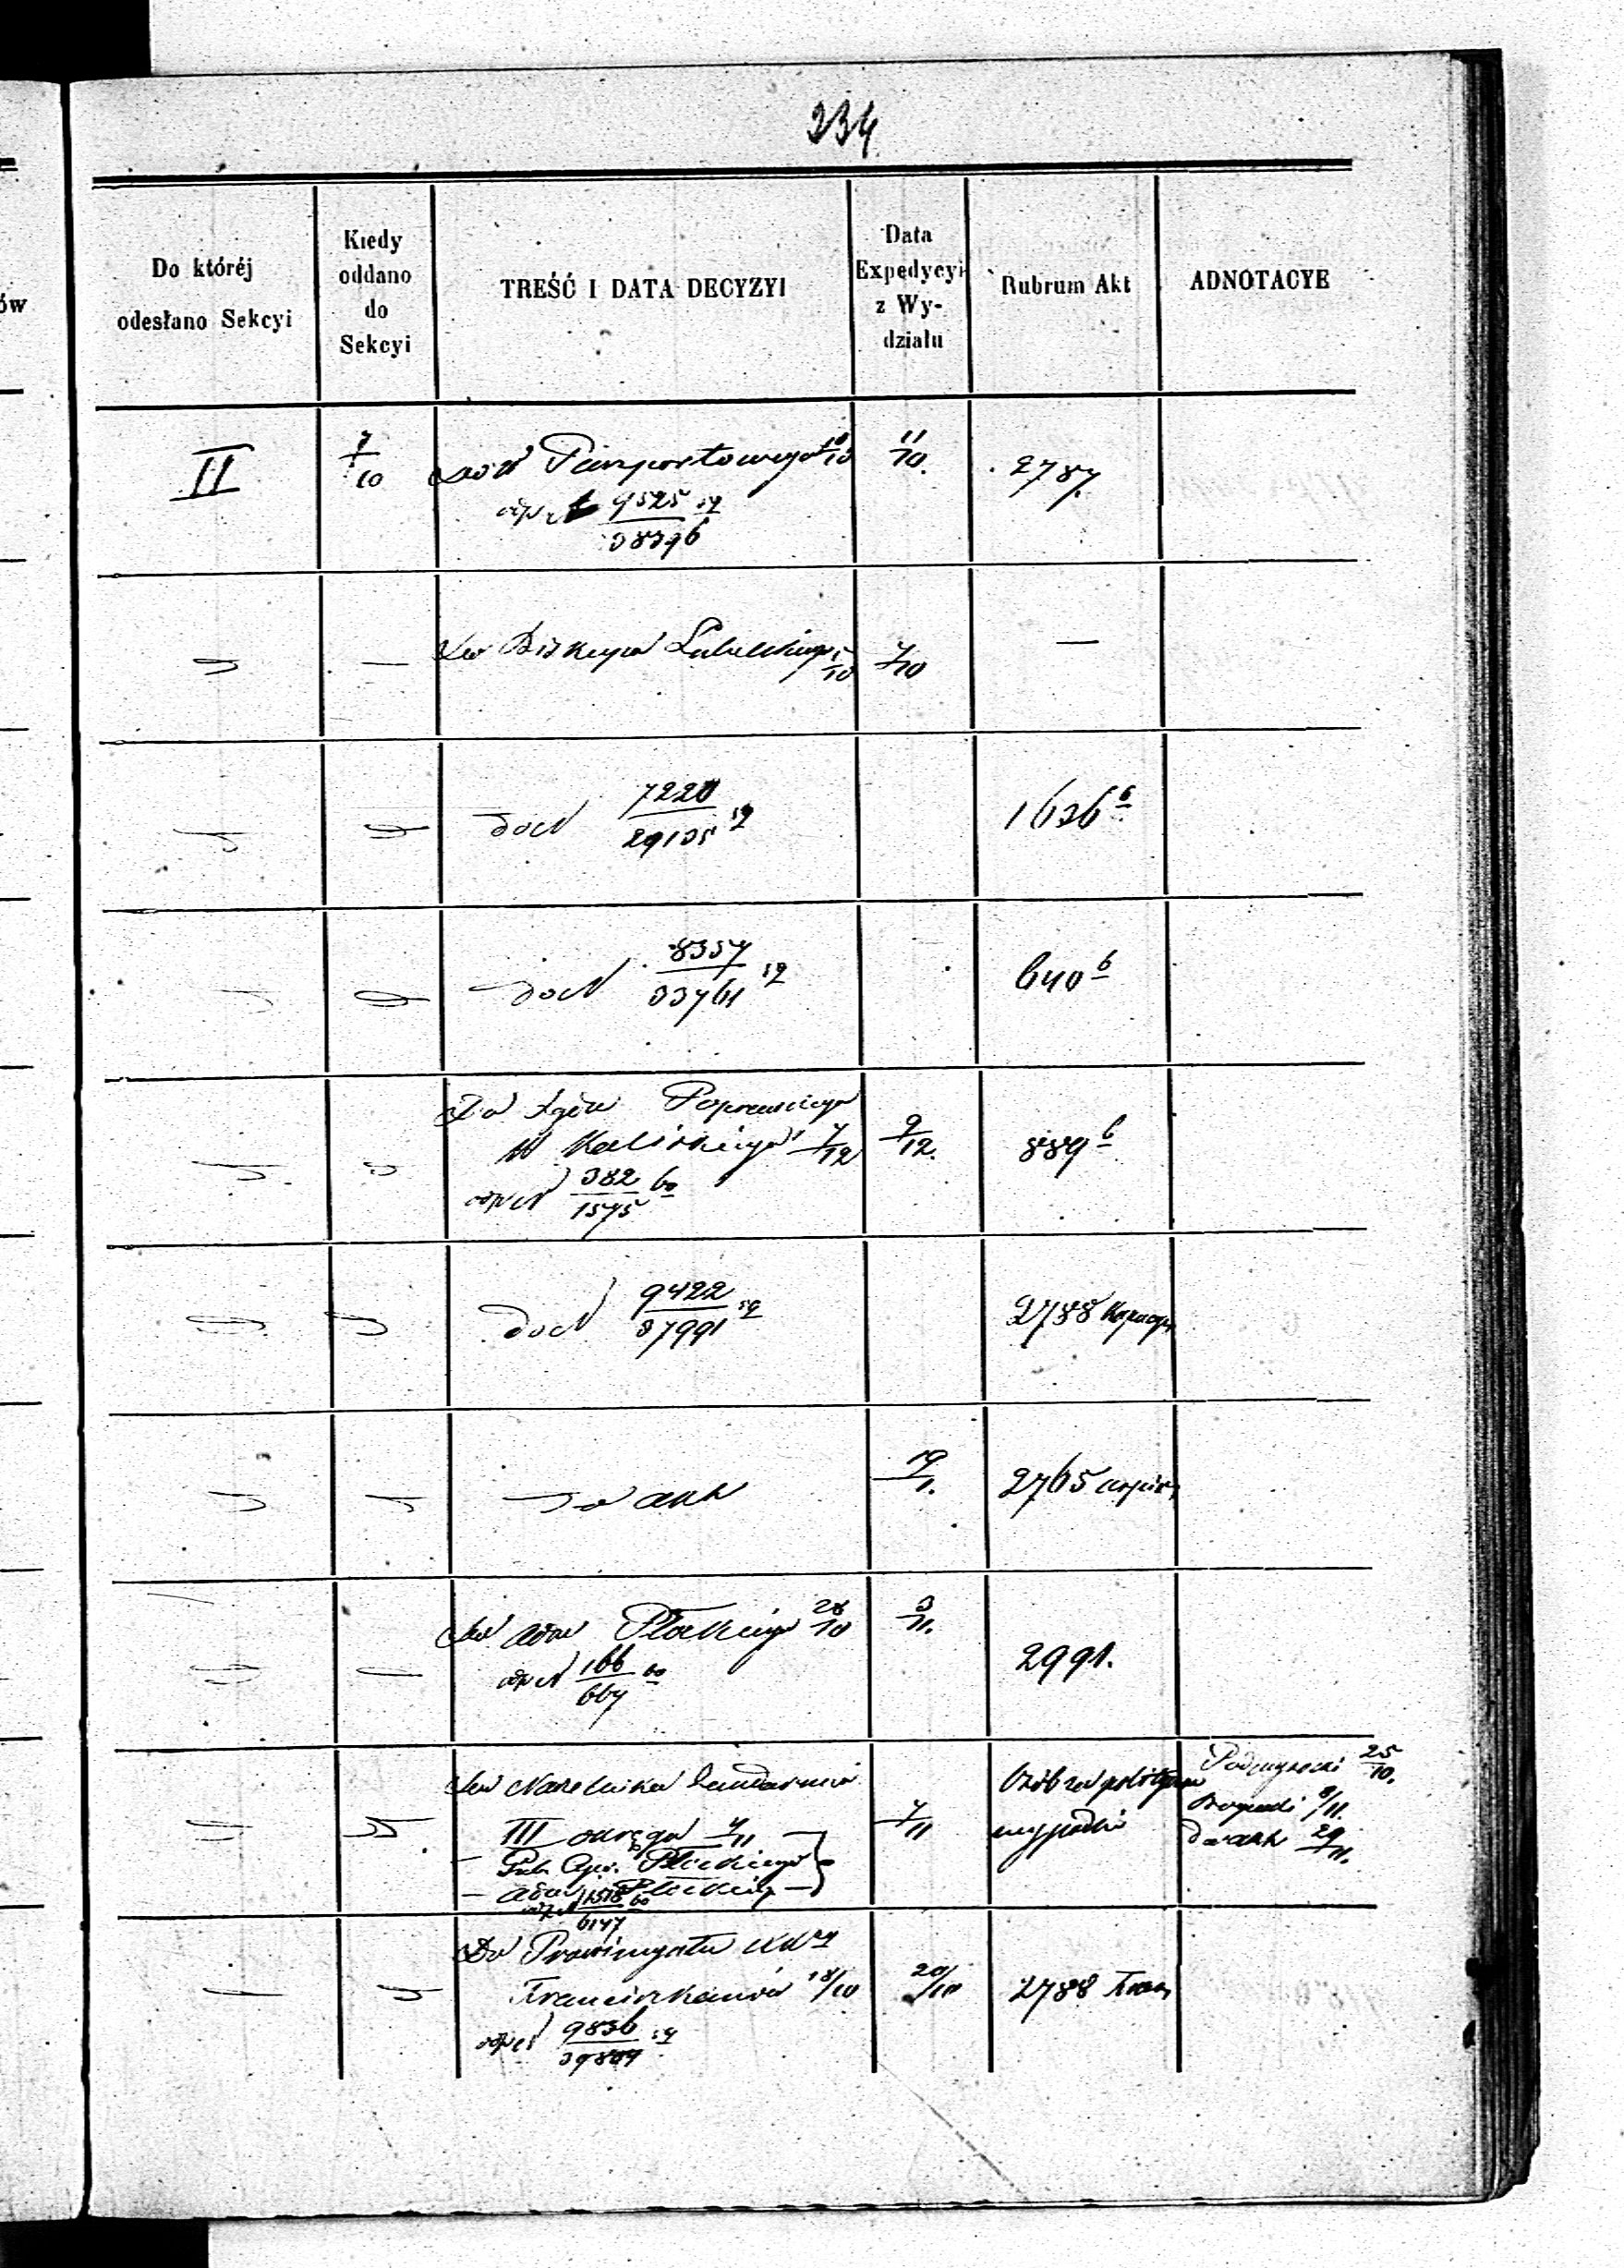 234
ów
Do któréj odesłano Sekcyi
Kiedy oddano do Sekcyi
TREŚĆ I DATA DECYZYI
Data Expedycyi z Wy-działu
Rubrum Akt
ADNOTACYE
II
7/10
Paszportowego 10/10
9525/38396 59
11/10.
2787.
Do Biskupa Lubelskiego 5/10
7/10
—
do N 7220/29135 59
1636 b
do N 8357/33761 59
640 b
Do Popraw
w Kaliskiego 7/12
odp N 382/1575 60
9/12.
889 b
do N 9422/37991 59
2788
Do akt
19/1.
2765
Do Adm Płockiego 28/10
odp N 166/667 60
3/11.
2991.
Do Naczelnika Żandarmerii
III okręgu 4/11
— Gub. Cyw. Płockiego
— Adm. Płockiego —
1518/6147 60
7/11
wypadki
25/10.
8/11.
Do akt 29/11.
Do Prowincyału
Franciszkanów 18/10
odp N 9836/39804 59
20/10
2788